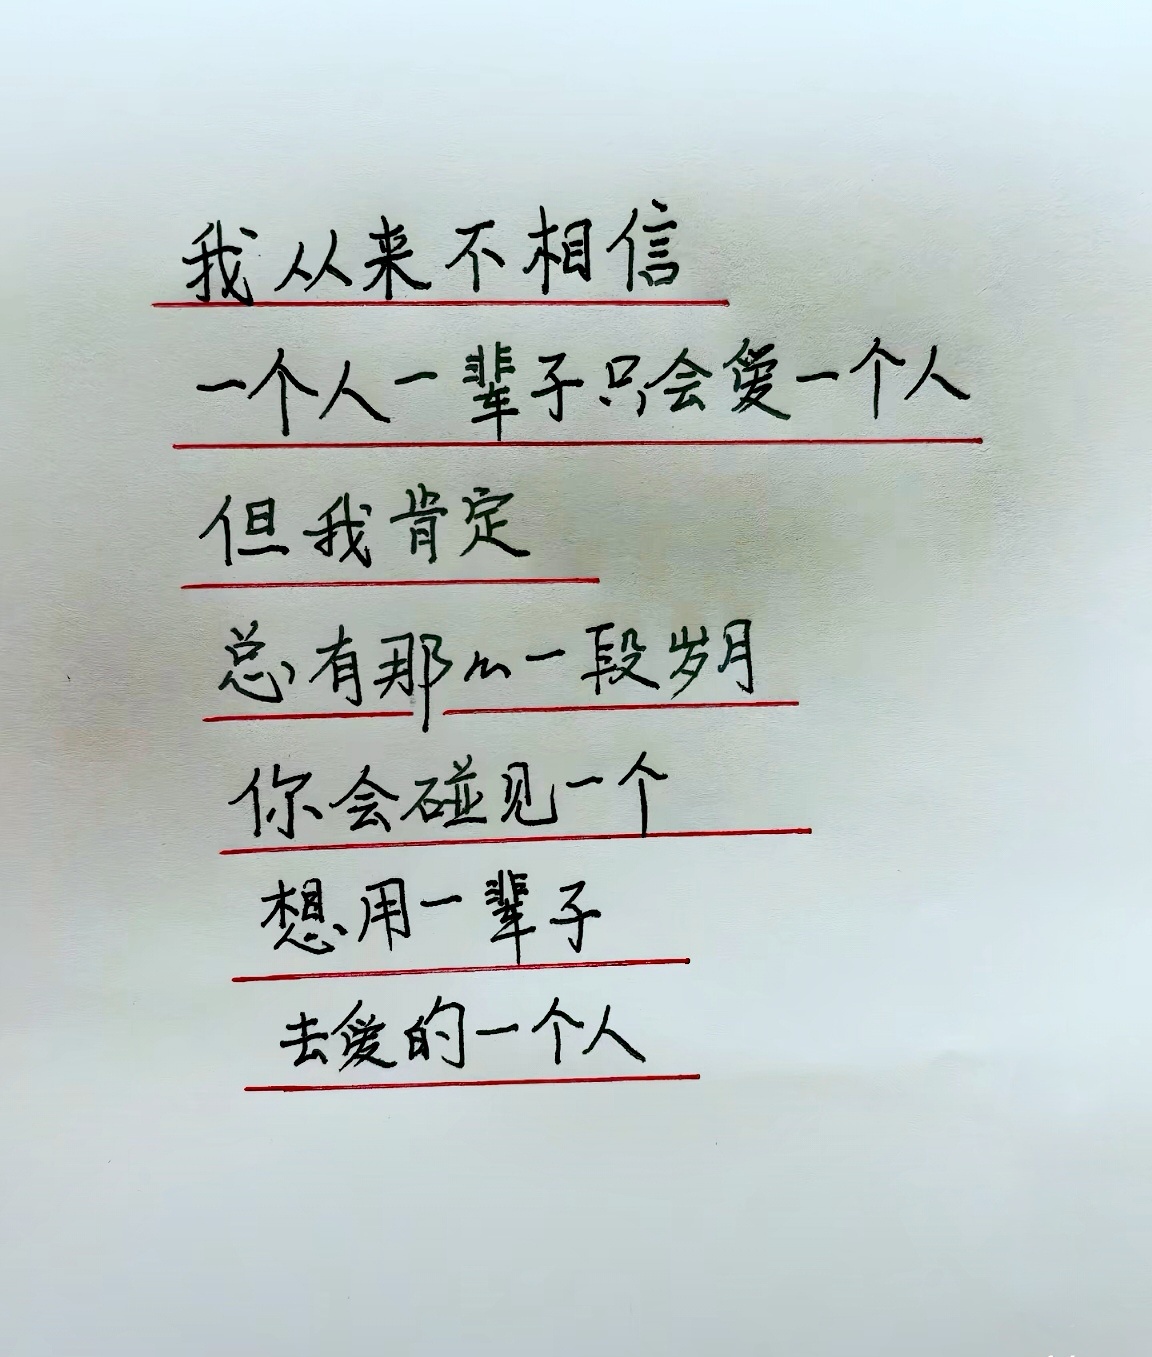 我从来不相信
一个人一辈子只会爱一个人
但我肯定
总有那么一段岁月
你会碰见一个
想用一辈子
去爱的一个人